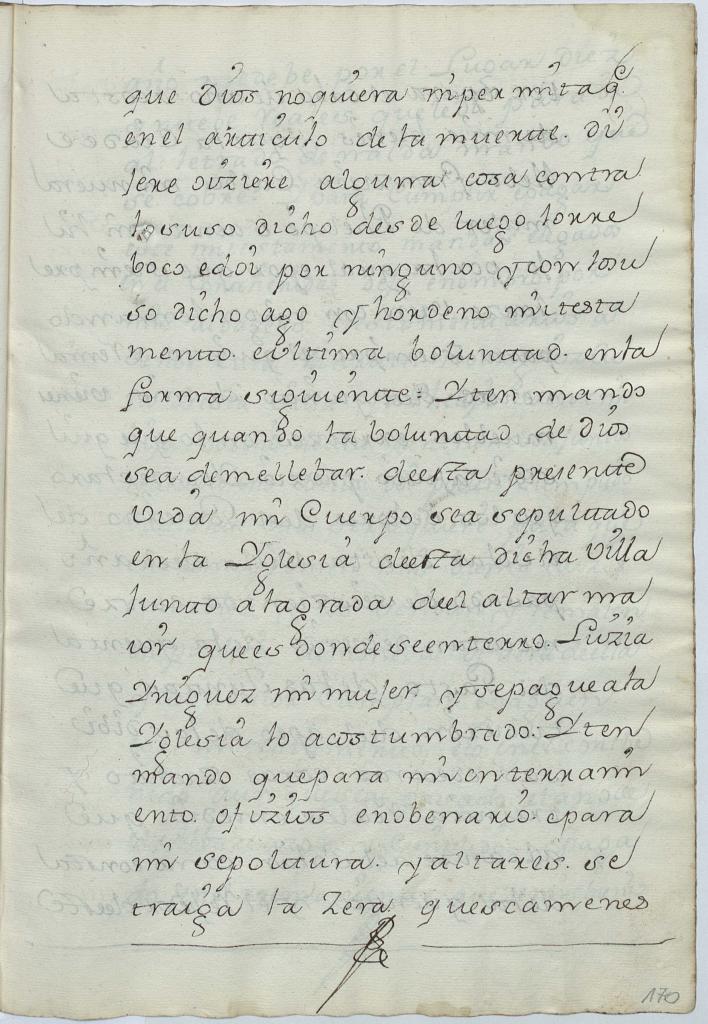 que Dios no quiera ni permita q.
en el articulo de la muertte. di
jere o iziere alguna cosa contra
lo suso dicho desde luego lo rre
boco e doi por ninguno y con lo su
so dicho ago y hordeno mi testa
mentto. e ultima boluntad. en la
forma siguientte: Yten mando
que quando la boluntad de Dios
sea de me llebar. de esta presentte
Vida mi Cuerpo sea sepulttado
en la Yglesia de esta dicha Villa
Juntto a la grada deel altar ma
ior que es donde se enterro. Luzia
Yniguez mi mujer. y se pague a la
Yglesia lo acostumbrado: Yten
mando que para mi enterrami
ento. ofizios e nobenario. e para
mi sepolttura. y altares. se
traiga la Zera. que sea menes
170